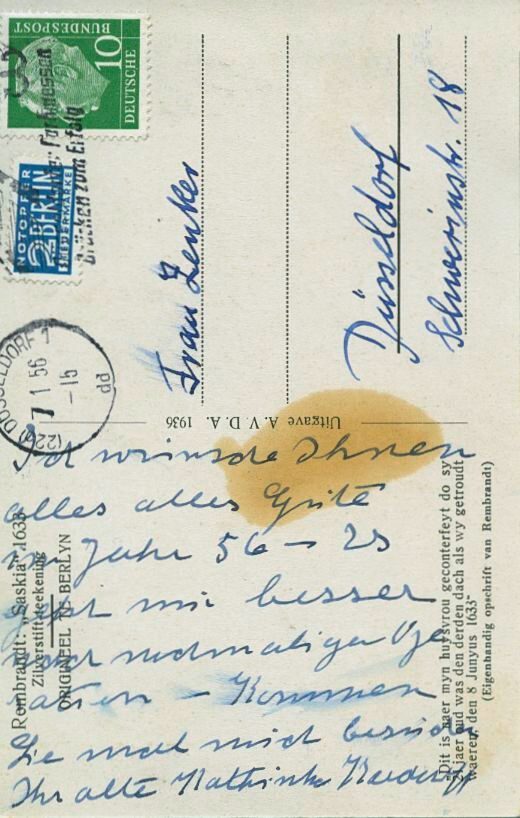 DEUTSCHE
BUNDESPOST
10
NOTOPFER
2 BERLIN
STEUERMARKE
Brücken zum Erfolg
(22a) DÜSSELDORF 1
7 1 56
-15
dd
Frau Zenker
Düsseldorf
Schwerinstr. 18
Uitgave A. V. D. A. 1936
Rembrandt: „Saskia” 1633
Zilverstiftteekening
ORIGINEEL TE BERLYN
Dit is naer myn huysvrou geconterfeyt do sy
21 jaer oud was den derden dach als wy getroudt
waeren, den 8 Junyus 1633”
(Eigenhandig opschrift van Rembrandt)
Ich wünsche Ihnen
alles alles Gute
im Jahr 56 – es
geht mir besser
nach nochmaliger Ope
ration – Kommen
Sie mal mich besuchen
Ihr alte Kathinka